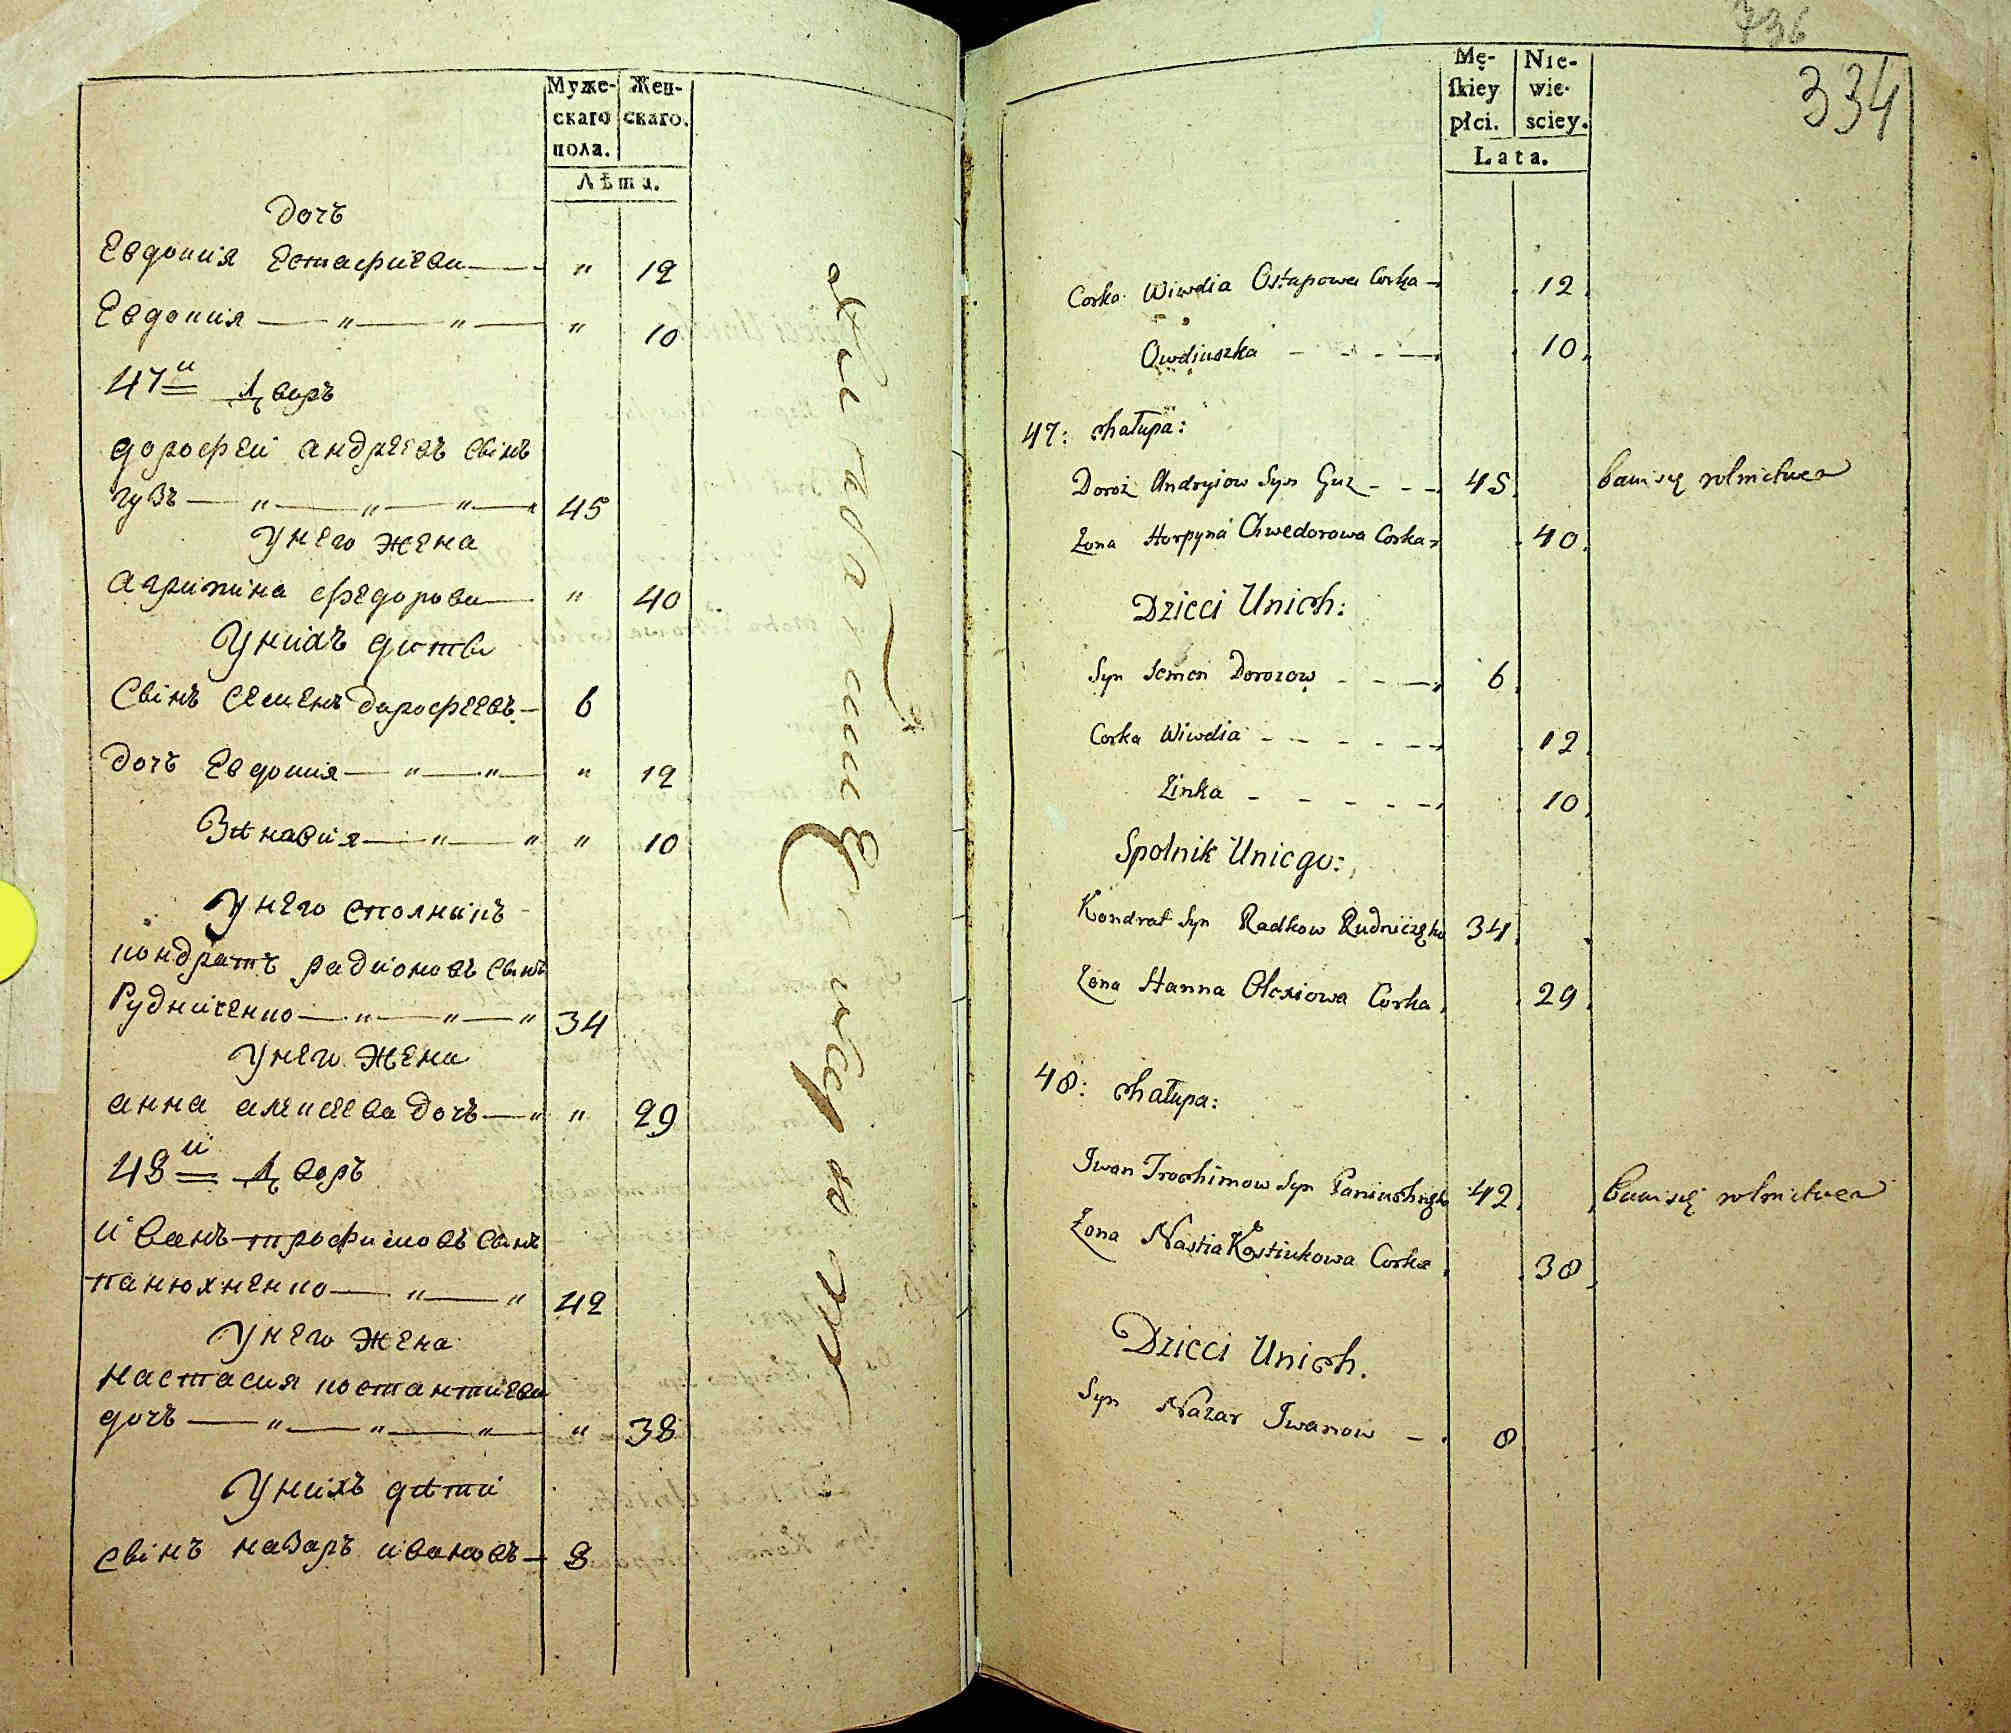 Муже-
скаго
пола.
Жен-
скаго.
Лѣта.
дочъ
Евдокия Естафиева — " 12
Евдокия — " — " — " 10
47й Дворъ
дорофей андреевъ свінъ
гузъ — " — " — " — 45
У него жена
агрипина федорова — " 40
У нихъ дитѣ
Свінъ семенъ дорофеевъ — 6
дочъ Евдокия — " — " — " 12
Зѣнавия — " — " " 10
У него сполникъ
кондратъ радионовъ свінъ
Рудниченко — " — " — " 34
У него жена
анна алексеева дочъ — " " 29
48й Дворъ
иванъ трофимовъ свінъ
панюхненко — " — " 42
У него жена
настасия костантиева
дочъ — " — " — " — " 38
У нихъ дѣти
свінъ назаръ ивановъ — 8
736
334
Mę-
skiey
płci.
Nie-
wie-
sciey.
Lata.
Corka Wiwdia Ostapowa Corka — 12
Owdiuszka - - - — 10
47: Chałupa:
Doroż Andryiow Syn Guz - - - 45 bawi się rolnictwem
Zona Horpyna Chwedorowa Corka 40
Dzieci Unich:
Syn Semen Dorozow - - — 6
Corka Wiwdia - - - - - 12
Zinka - - - - - 10
Spolnik Uniego:
Kondrat Syn Radkow Rudniczęko 34
Zona Hanna Olexiowa Corka 29
48: Chałupa:
Jwan Trochimow Syn Paniuchnęko 42 bawi się rolnictwem
Zona Nastia Kostiukowa Corka 38
Dzieci Unich.
Syn Nazar Jwanow - 8